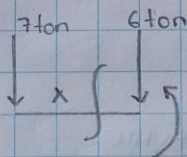 7ton 6ton
x